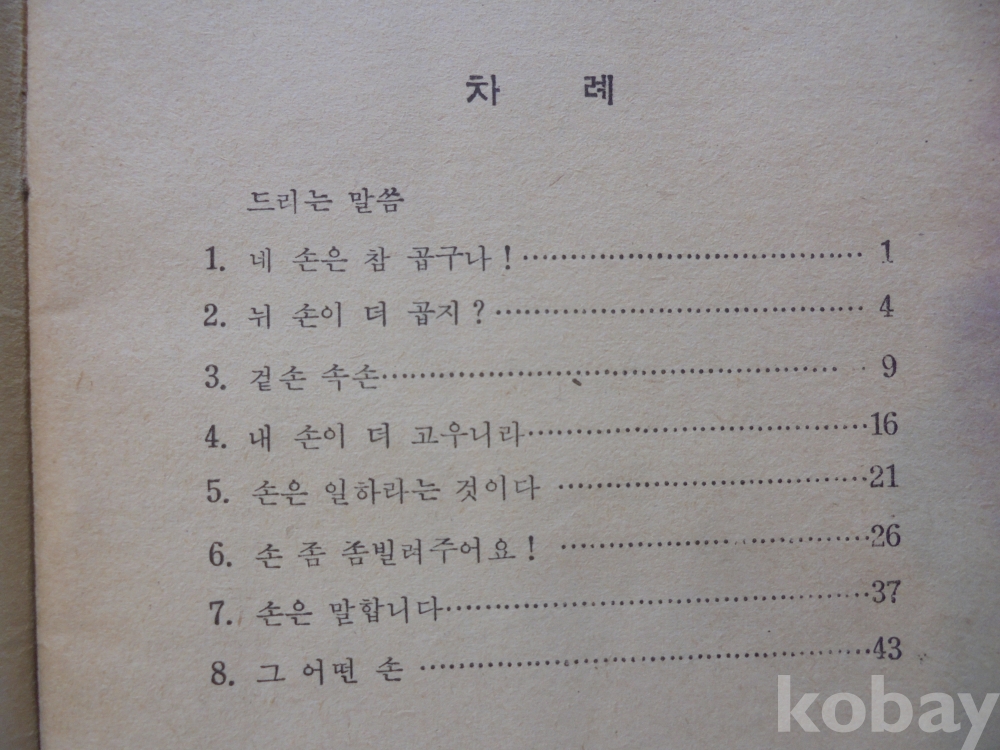 차 례
드리는 말씀
1. 네 손은 참 곱구나!…………………………… 1
2. 뉘 손이 더 곱지?…………………………… 4
3. 겉손 속손…………………………………… 9
4. 내 손이 더 고우니라…………………………16
5. 손은 일하라는 것이다 …………………………21
6. 손 좀 좀빌려주어요! …………………………26
7. 손은 말합니다…………………………………37
8. 그 어떤 손 ……………………………………43
kobay